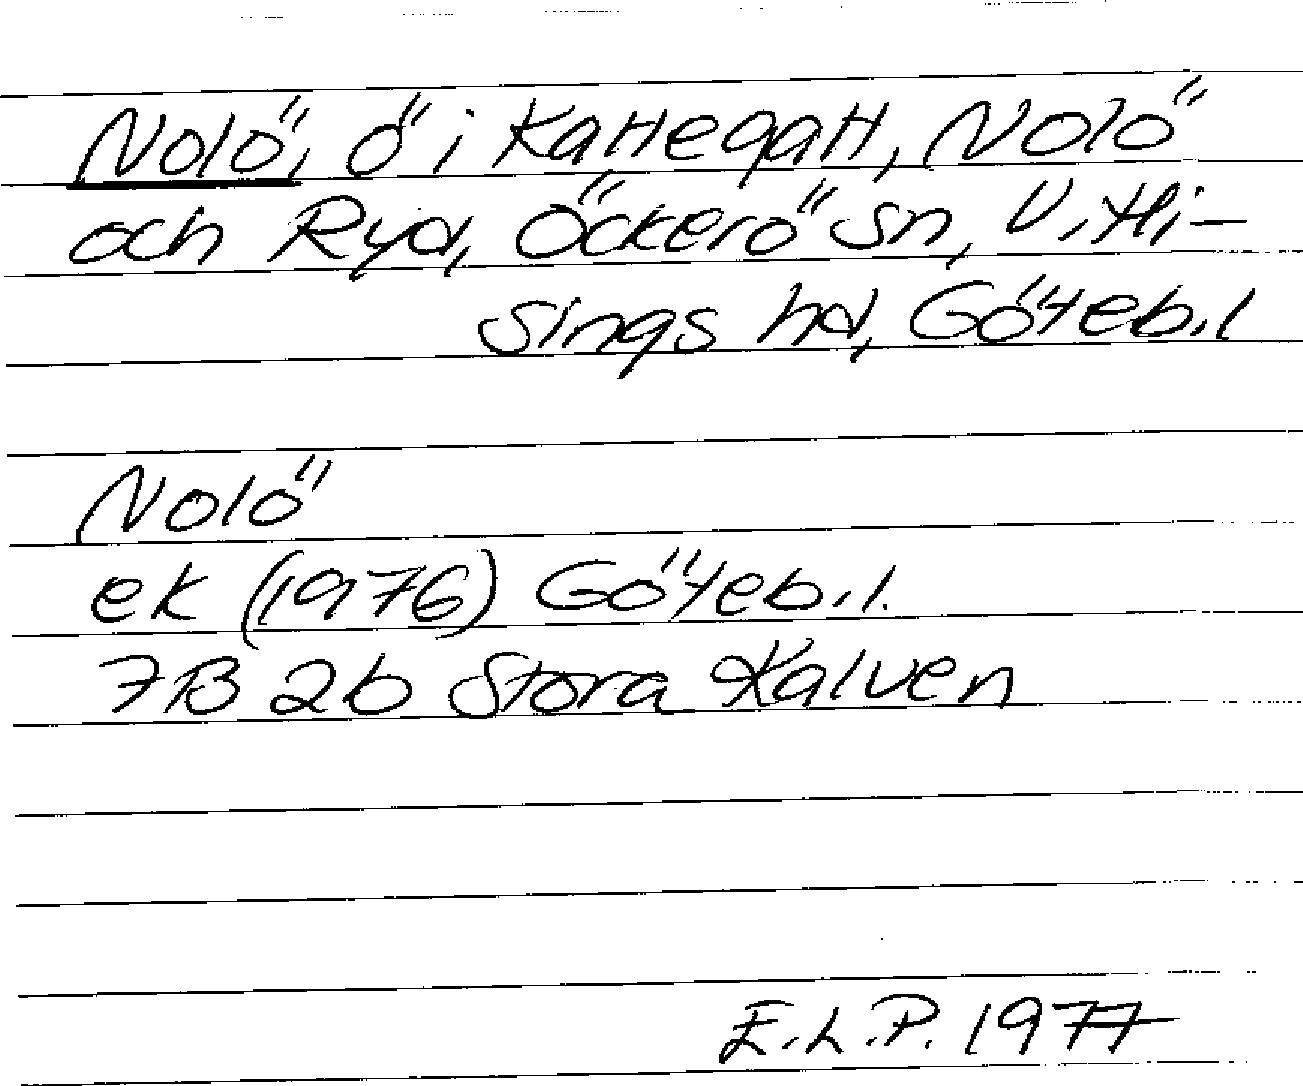 Nolö, ö i Kattegatt, Nolö
och Ryd, Öckerö sn, V. Hi-
sings hd, Göteb. l
Nolö
ek (1976) Göteb. l.
7B 2b Stora Kalven
E.L.P. 1977